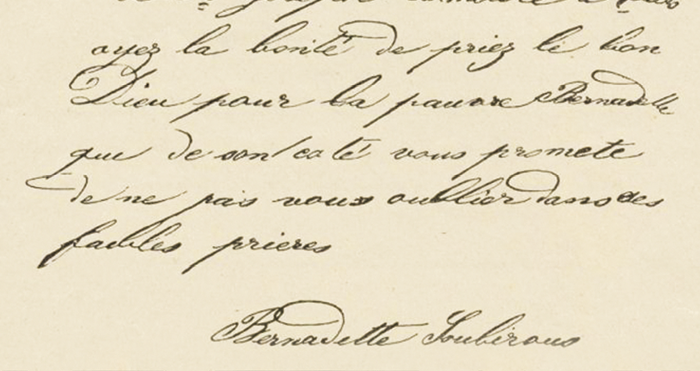 ayez la bonté de priez le bon
Dieu pour la pauvre Bernadette
que de son coté vous promete
de ne pas vous oublier dans ses
faibles prieres
Bernadette Soubirous